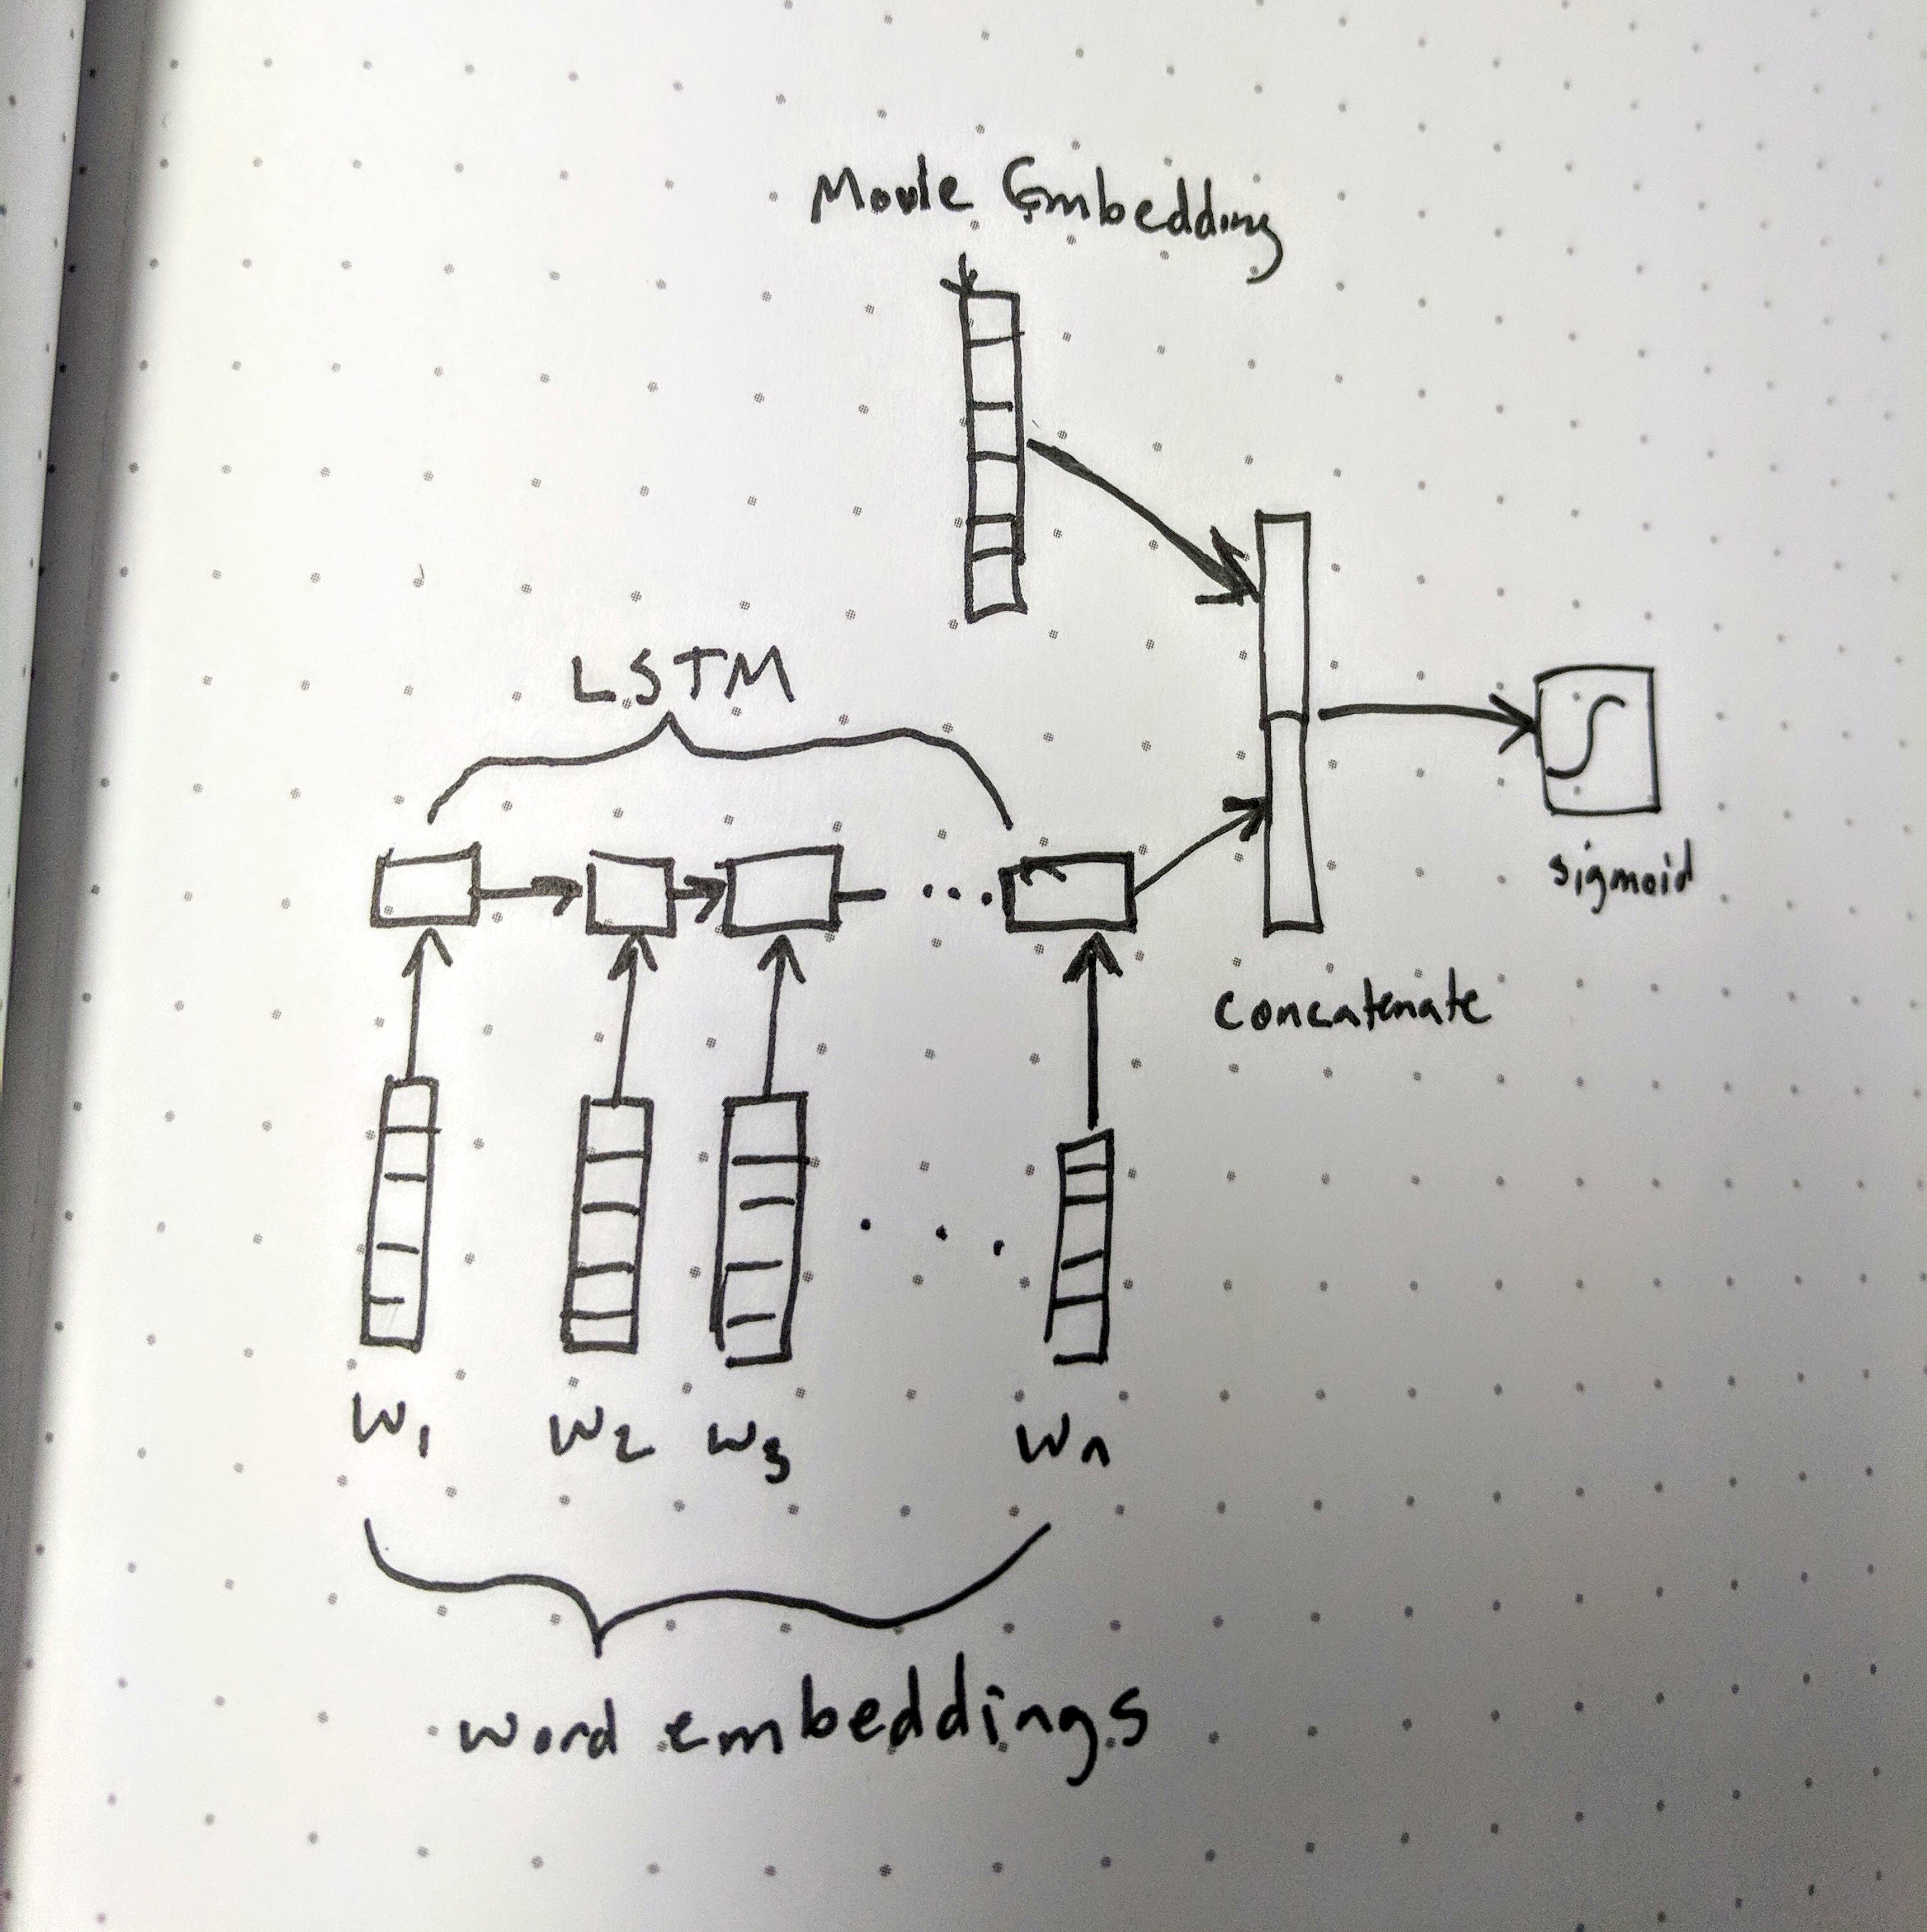 Movie Embedding
LSTM
sigmoid
concatenate
W1 W2 W3 Wn
word embeddings